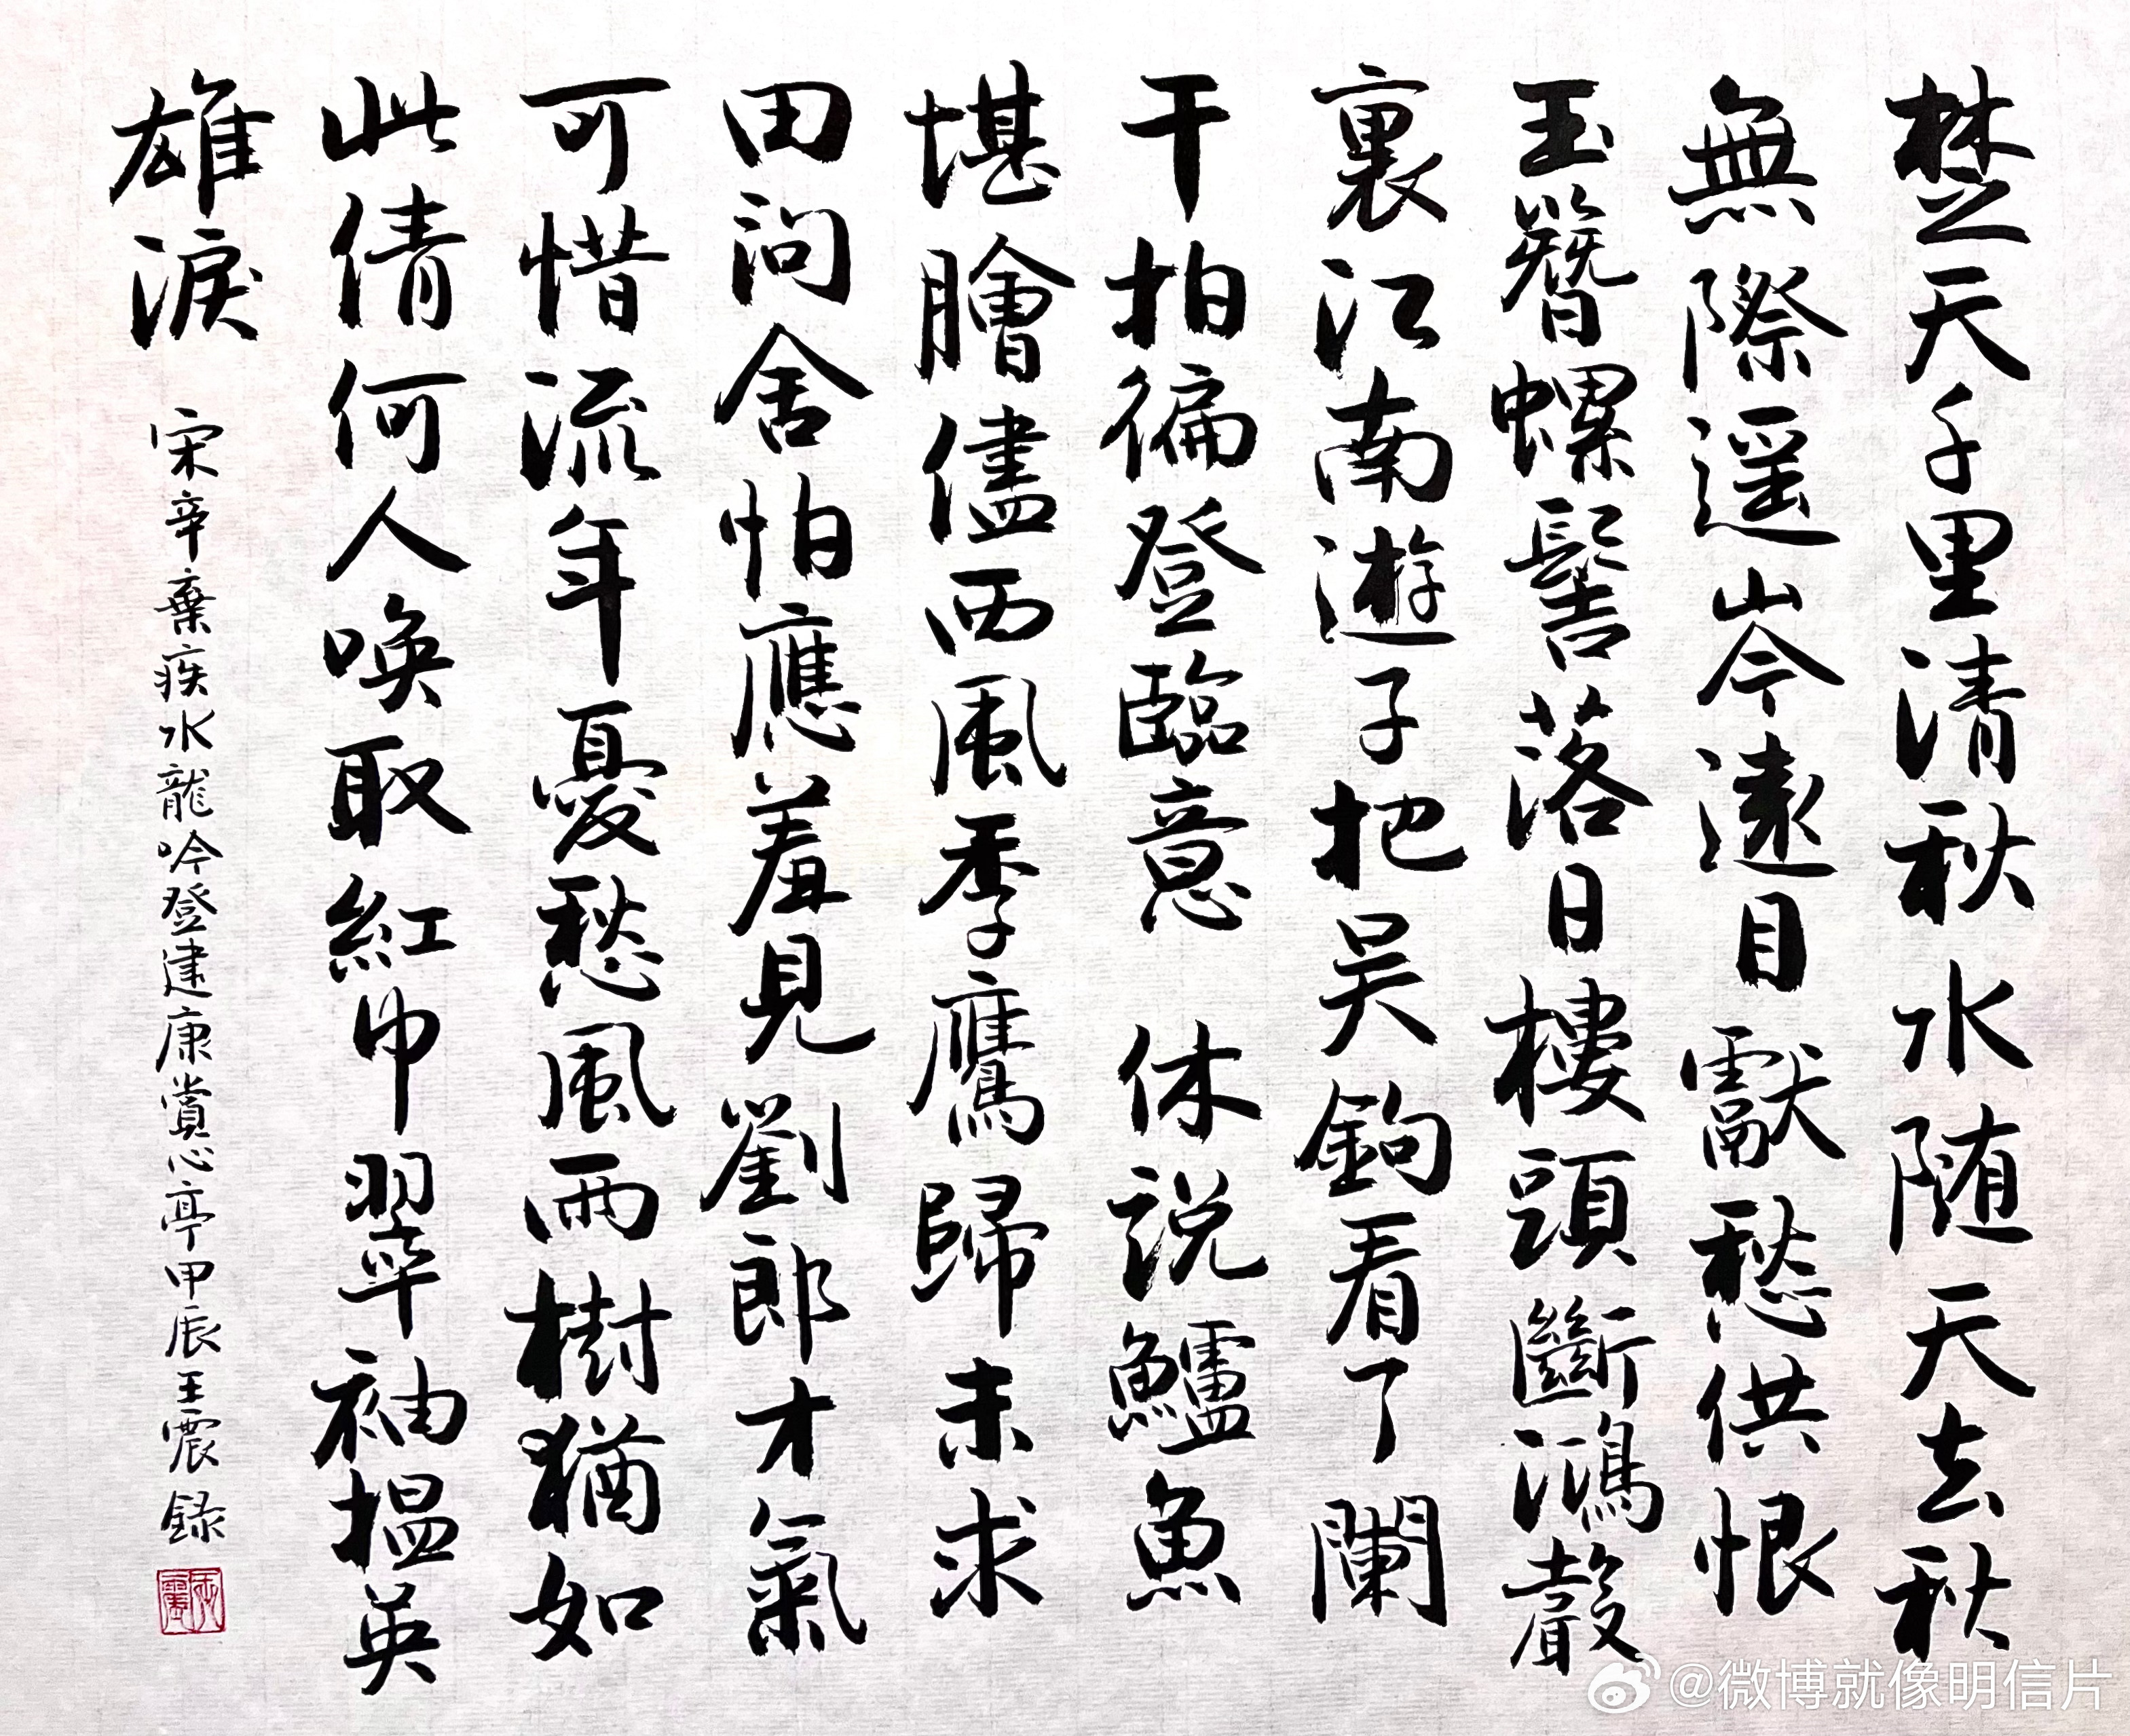 楚天千里清秋水随天去秋
無際遥岑遠目獻愁供恨
玉簪螺髻落日樓頭斷鴻聲
裏江南遊子把吴鉤看了闌
干拍徧登臨意 休説鱸魚
堪膾儘西風季鷹歸未求
田问舍怕應羞見劉郎才氣
可惜流年憂愁風雨樹猶如
此倩何人唤取紅巾翠袖揾英
雄淚
宋辛棄疾水龍吟登建康賞心亭甲辰王震錄
王震
@微博就像明信片